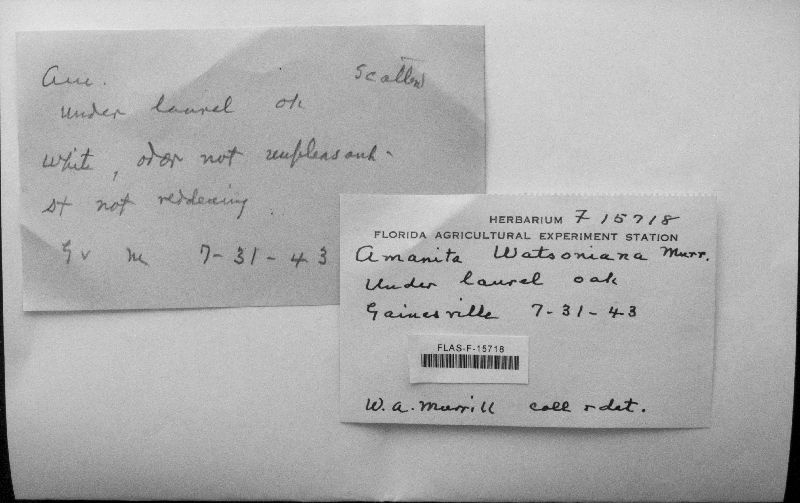 Am. Scatter
under laurel ok
white, odor not unpleasant -
st not reddening.
Gv M 7-31-43
HERBARIUM F 15718
FLORIDA AGRICULTURAL EXPERIMENT STATION
Amanita Watsoniana Murr.
Under laurel oak
Gainesville 7-31-43
FLAS-F-15718
W.A. Murrill coll & det.